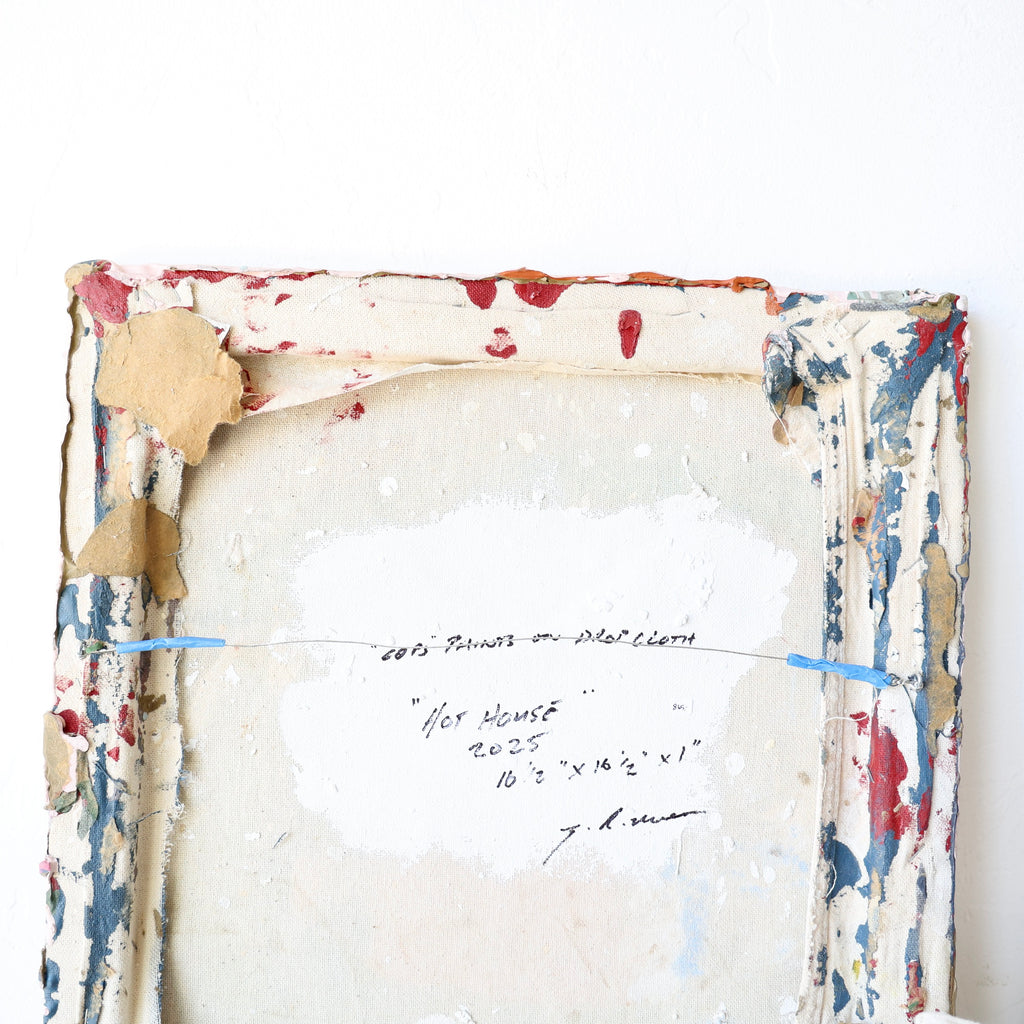 PAINTS ON DROP CLOTH
"HOT HOUSE"
2025
16 1/2" X 16 1/2" X 1"